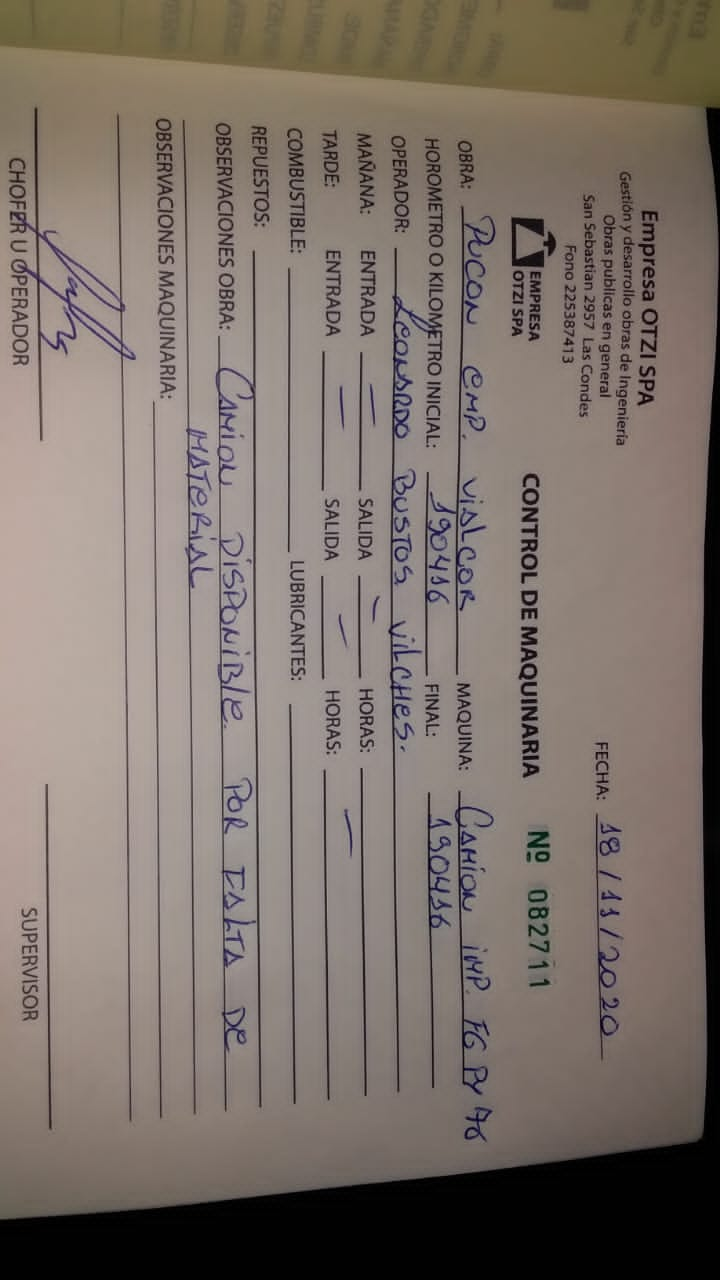 Empresa OTZI SPA
Gestión y desarrollo obras de Ingeniería
Obras publicas en general
San Sebastian 2957 Las Condes
Fono 225387413
FECHA: 18/11/2020
EMPRESA
OTZI SPA
CONTROL DE MAQUINARIA Nº 082711
OBRA: PUCON EMP. VIALCOR MAQUINA: CAMION IMP. FG PY 76
HOROMETRO O KILOMETRO INICIAL: 190416 FINAL: 190416
OPERADOR: LEONARDO BUSTOS VILCHES.
MAÑANA: ENTRADA — SALIDA — HORAS:
TARDE: ENTRADA — SALIDA — HORAS: —
COMBUSTIBLE: LUBRICANTES:
REPUESTOS:
OBSERVACIONES OBRA: CAMION DISPONIBLE. POR FALTA DE
MATERIAL
OBSERVACIONES MAQUINARIA:
CHOFER U OPERADOR SUPERVISOR